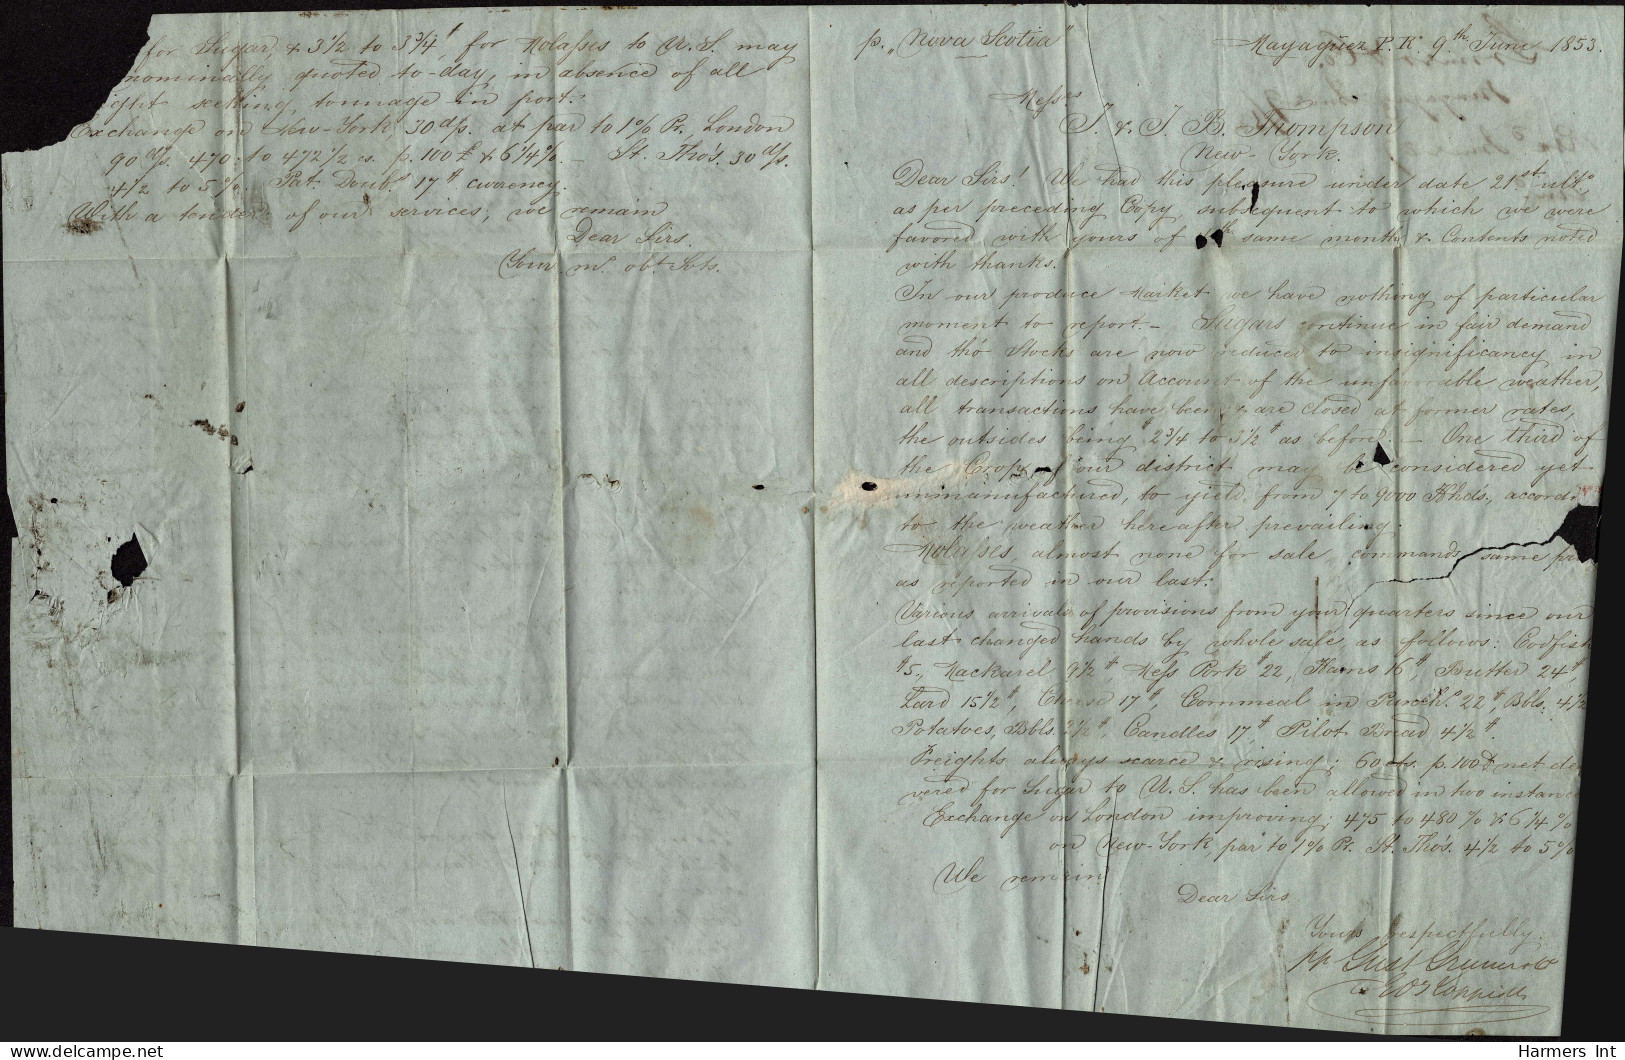 for Sugar, & 3 1/2 to 3 3/4 $ for Molasses to U. S. may
nominally quoted to-day, in absence of all
ight seeking tonnage in port.
Exchange on New-York 30 d/s. at par to 1% Pr, London
90 d/s. 470 to 472 1/2 cs. p. 100 £ & 6 1/4 %. — St. Tho's. 30 d/s.
4 1/2 to 5 %. Pat. Doubs. 17 $ currency.
With a tender of our services, we remain
Dear Sirs.
Your m. obt. Svts.
p. "Nova Scotia"
Mayaguez P. R. 9th June 1853.
Messrs
J. & J. B. Thompson
New-York.
Dear Sirs! We had this pleasure under date 21st ulto.,
as per preceding Copy, subsequent to which we were
favored with yours of same month & Contents noted
with thanks.
In our produce Market we have nothing of particular
moment to report. — Sugars continue in fair demand
and tho' Stocks are now reduced to insignificancy in
all descriptions on Account of the unfavorable weather,
all transactions have been & are closed at former rates,
the outsides being 2 3/4 to 3 1/2 $ as before. — One third of
the Crop of our district may be considered yet
unmanufactured, to yield from 7 to 9000 Hhds., accord.
to the weather hereafter prevailing.
Molasses, almost none for sale, commands same pr
as reported in our last.
Various arrivals of provisions from your quarters since our
last changed hands by whole sale, as follows: Codfish
$5., Mackarel 9 1/2 $, Mess Pork $ 22, Hams 16 $, Butter 24 $,
Lard 15 1/2 $, Cheese 17 $, Cornmeal in Punch.s 22 $, Bbls. 4 1/2
Potatoes, Bbls. 2 1/2 $, Candles 17 $ Pilot Bread 4 1/2 $.
Freights always scarce & rising; 60 cts. p. 100 net de
vered for Sugar to U. S. has been allowed in two instanc
Exchange on London improving; 475 to 480 % & 6 1/4 %
on New-York par to 1 % Pr. St. Tho's. 4 1/2 to 5 %
We remain
Dear Sirs
Yours respectfully
pp Gust. Gruner & Co
Harmers Int